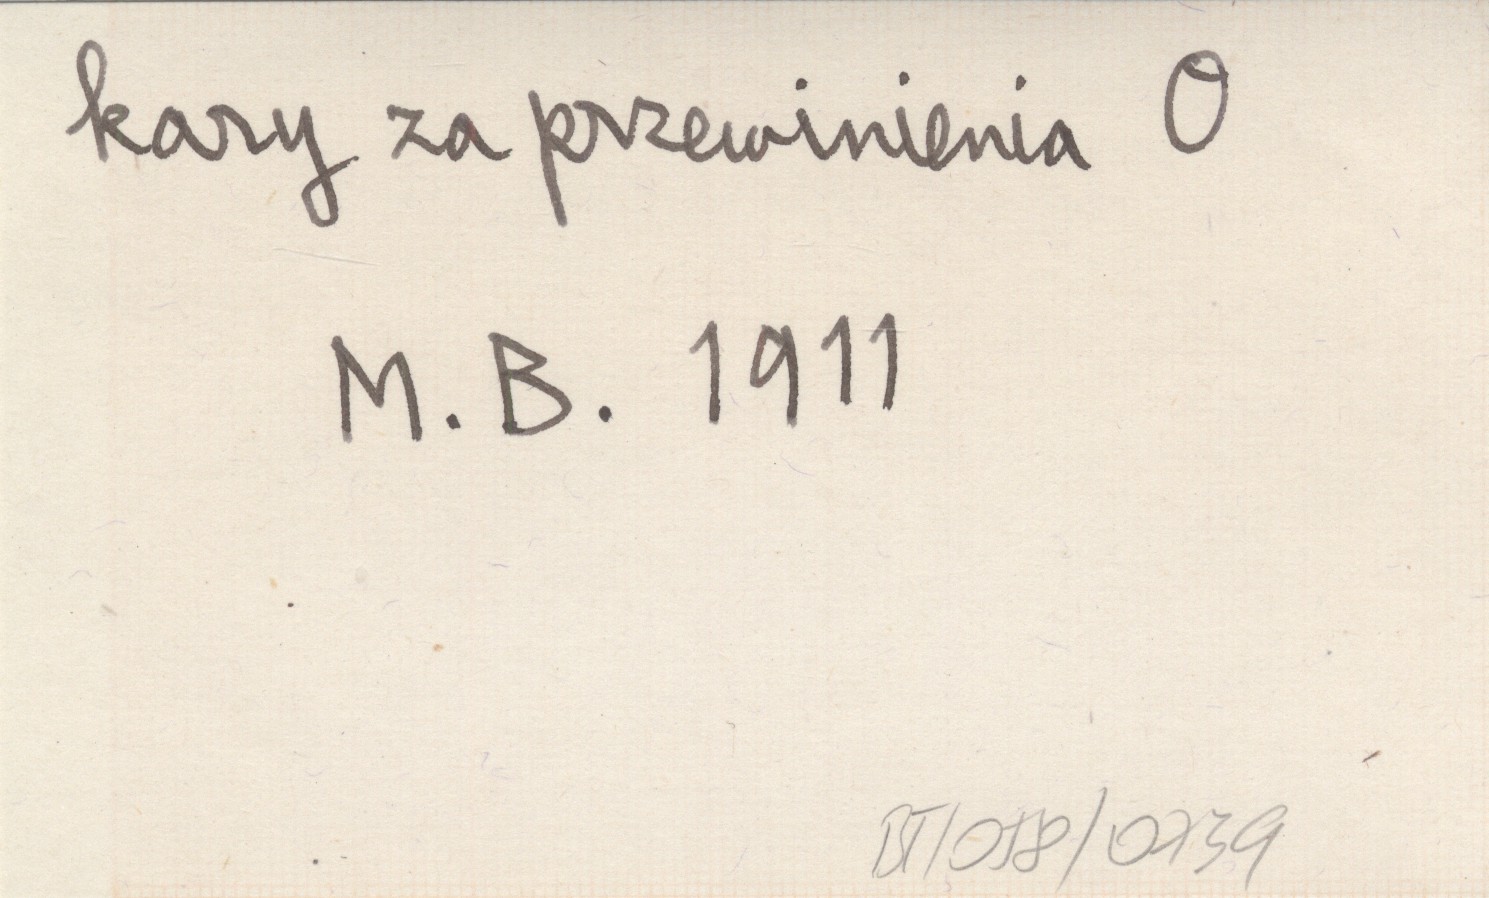 kary za przewinienia O
M. B. 1911
BT/058/0739